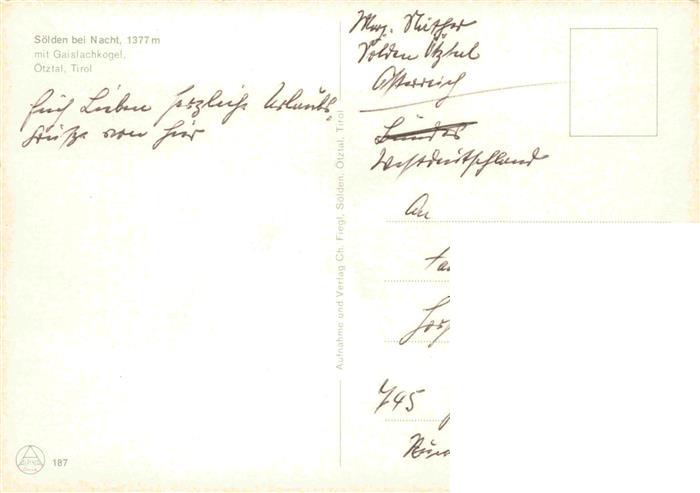 Sölden bei Nacht, 1377 m
mit Gaislachkogel,
Ötztal, Tirol
Euch Lieben herzliche Urlaubs-
grüße von hier
Aufnahme und Verlag Ch. Fiegl, Sölden, Ötztal, Tirol
187
Sölden Ötztal
Österreich
Westdeutschland
An
745